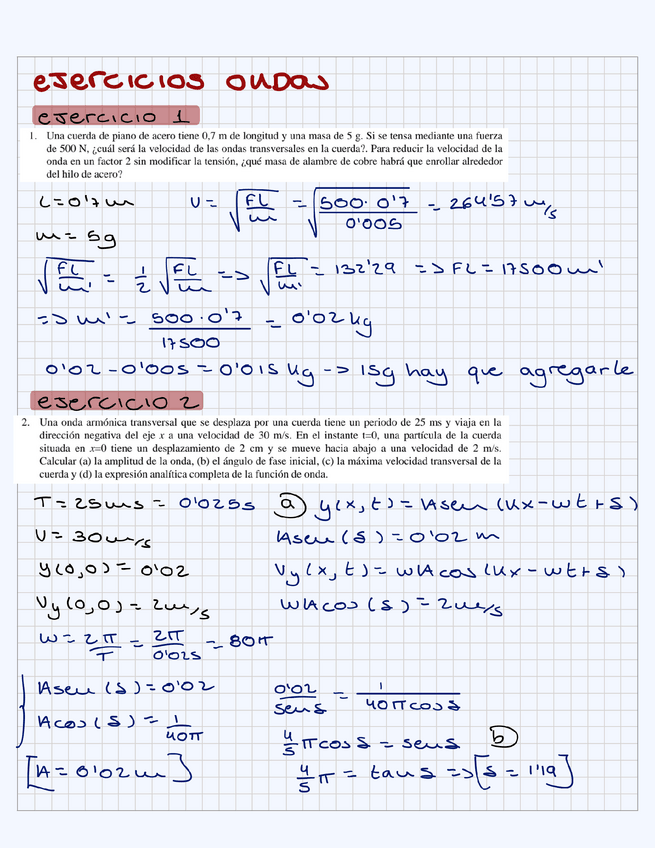 ejercicios ondas
ejercicio 1
1. Una cuerda de piano de acero tiene 0,7 m de longitud y una masa de 5 g. Si se tensa mediante una fuerza
de 500 N, ¿cuál será la velocidad de las ondas transversales en la cuerda?. Para reducir la velocidad de la
onda en un factor 2 sin modificar la tensión, ¿qué masa de alambre de cobre habrá que enrollar alrededor
del hilo de acero?
L=0'7m v = √(FL/m) = √(500·0'7/0'005) = 264'57 m/s
m = 5g
√(FL/m') = 1/2 √(FL/m) => √(FL/m') = 132'29 => FL = 17500m'
=> m' = 500·0'7/17500 = 0'02 kg
0'02 - 0'005 = 0'015 kg -> 15g hay que agregarle
ejercicio 2
2. Una onda armónica transversal que se desplaza por una cuerda tiene un periodo de 25 ms y viaja en la
dirección negativa del eje x a una velocidad de 30 m/s. En el instante t=0, una partícula de la cuerda
situada en x=0 tiene un desplazamiento de 2 cm y se mueve hacia abajo a una velocidad de 2 m/s.
Calcular (a) la amplitud de la onda, (b) el ángulo de fase inicial, (c) la máxima velocidad transversal de la
cuerda y (d) la expresión analítica completa de la función de onda.
T = 25ms = 0'025s a y(x,t) = Asen(kx-wt+δ)
v = 30m/s Asen(δ) = 0'02 m
y(0,0) = 0'02 Vy(x,t) = wAcos(kx-wt+δ)
Vy(0,0) = 2m/s wAcos(δ) = 2m/s
w = 2π/T = 2π/0'025 = 80π
Asen(δ) = 0'02 0'02/senδ = 1/40πcosδ
Acos(δ) = 1/40π
4/5 πcosδ = senδ b
[A = 0'02m] 4/5 π = tanδ => [δ = 1'19]